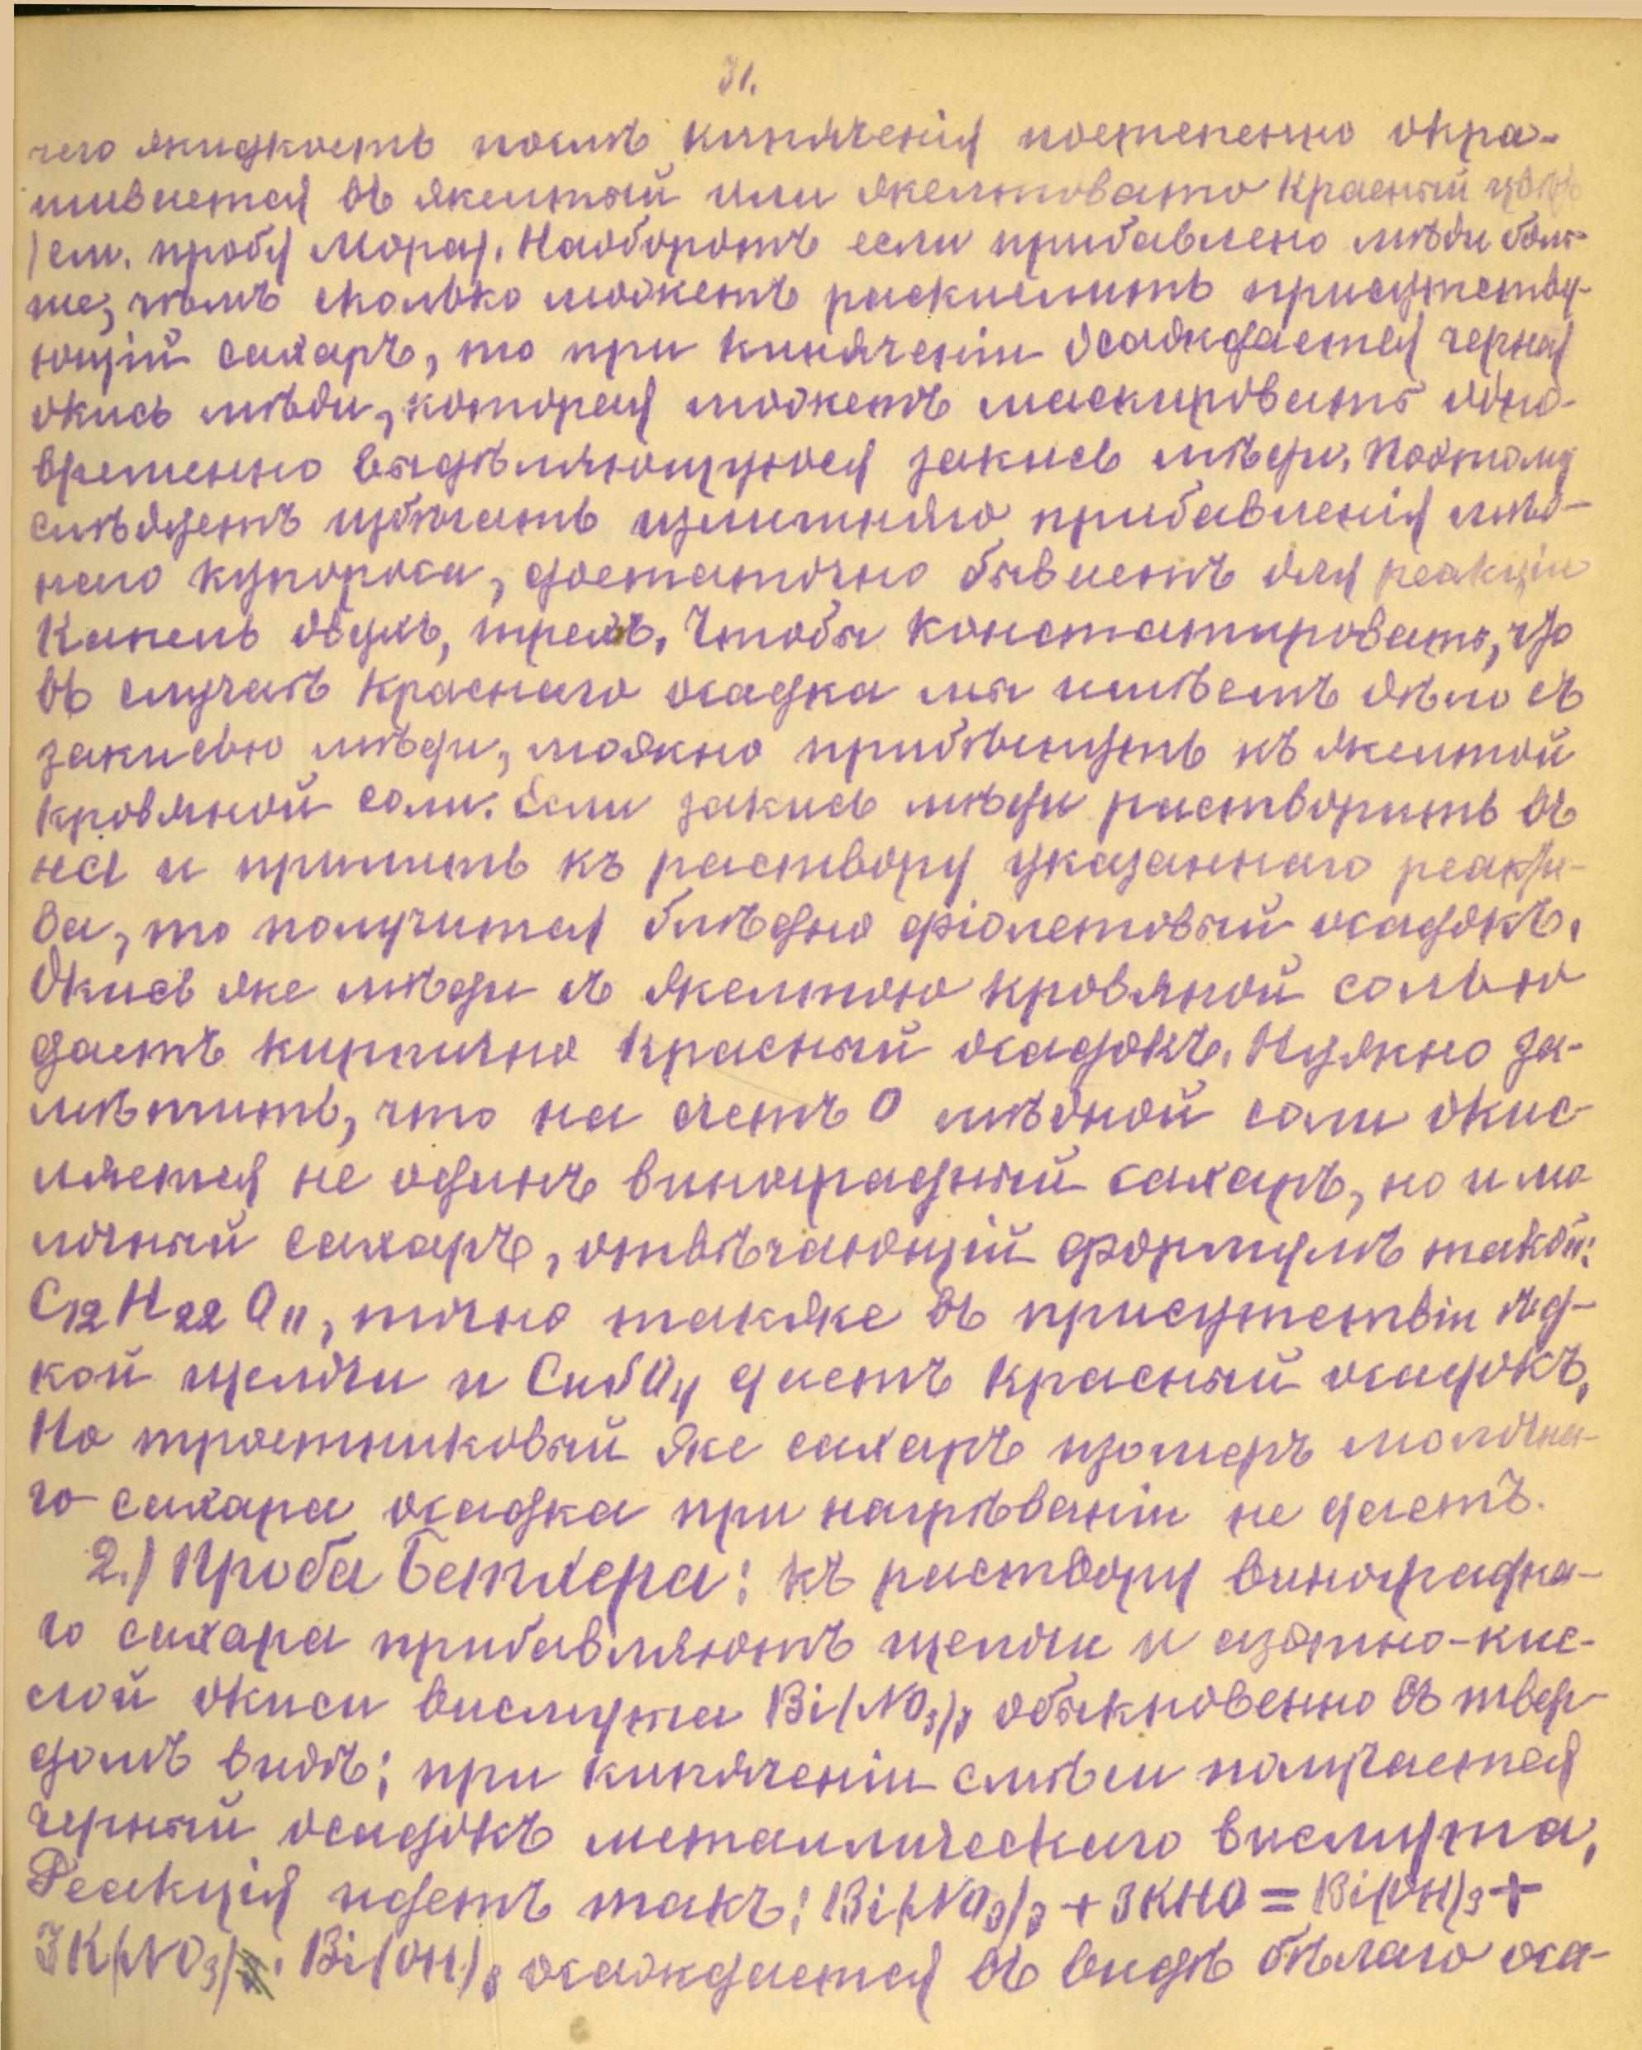 31.
чего жидкость послѣ кипяченія постепенно окра-
шивается въ желтый или желтовато красный цвѣтъ
(см. пробу Мора). Наоборотъ если прибавлено мѣди боль-
ше, чѣмъ сколько можетъ раскислить присутству-
ющій сахаръ, то при кипяченіи осаждается черная
окись мѣди, которая можетъ маскировать одно-
временно выдѣляющуюся закись мѣди. Поэтому
слѣдуетъ избѣгать излишняго прибавленія мѣд-
наго купороса, достаточно бываетъ для реакціи
капель двухъ, трехъ. Чтобы констатировать, что
въ случаѣ краснаго осадка мы имѣемъ дѣло съ
закисью мѣди, можно прибѣгнуть къ желтой
кровяной соли. Если закись мѣди растворить въ
HCl и прилить къ раствору указаннаго реакти-
ва, то получится блѣдно фіолетовый осадокъ.
Окись же мѣди съ желтою кровяной солью
даетъ кирпично красный осадокъ. Нужно за-
мѣтить, что на счетъ O мѣдной соли окис-
ляется не одинъ виноградный сахаръ, но и мо
лочный сахаръ, отвѣчающій формулѣ такой:
C12H22O11, точно также въ присутствіи ѣд-
кой щелочи и CuSO4 даетъ красный осадокъ.
Но тростниковый же сахаръ изомеръ молочна-
го сахара осадка при нагрѣваніи не даетъ.
2.) Проба Бетхера: къ раствору виноградна-
го сахара прибавляютъ щелочи и азотно-кис-
слой окиси висмута Bi(NO3)3 обыкновенно въ твер-
домъ видѣ; при кипяченіи смѣси получается
черный осадокъ металлическаго висмута,
Реакція идетъ такъ: Bi(NO3)3 + 3KHO = Bi(OH)3 +
3K(NO3). Bi(OH)3 осаждается въ видѣ бѣлаго оса-